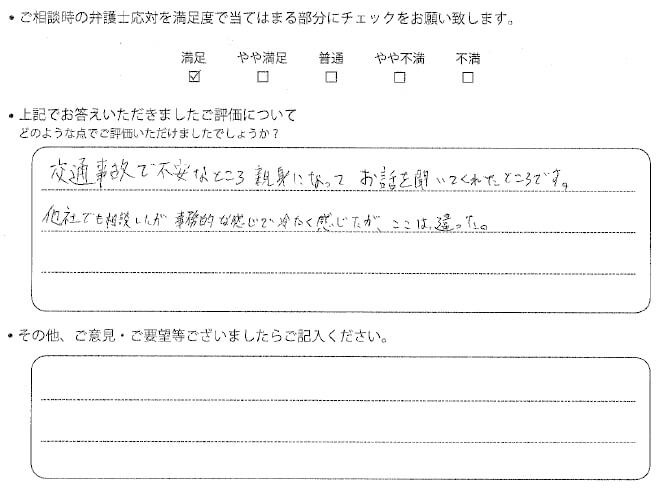 • ご相談時の弁護士応対を満足度で当てはまる部分にチェックをお願い致します。
満足 やや満足 普通 やや不満 不満
☑ ☐ ☐ ☐ ☐
• 上記でお答えいただきましたご評価について
どのような点でご評価いただけましたでしょうか？
交通事故で不安なところ親身になって お話を聞いてくれたところです。
他社でも相談したが 事務的な感じで冷たく感じたが、ここは違った。
• その他、ご意見・ご要望等ございましたらご記入ください。